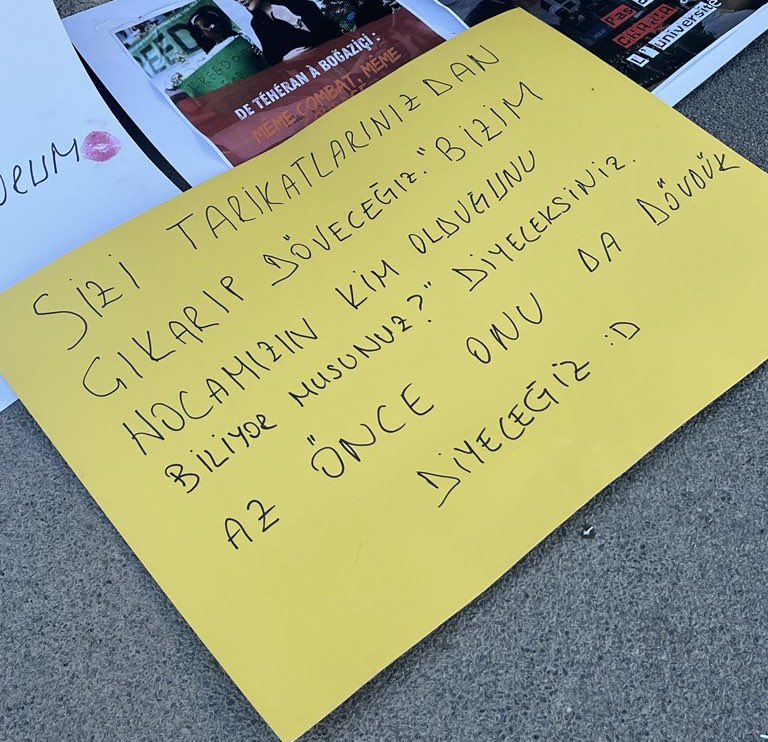 DE TÉHÉRAN À BOĞAZİÇİ :
MÊME COMBAT, MÊME
PAS
L'université
SİZİ TARİKATLARINIZDAN
ÇIKARIP DÖVECEĞİZ. "BİZİM
HOCAMIZIN KİM OLDUĞUNU
BİLİYOR MUSUNUZ?" DİYECEKSİNİZ.
AZ ÖNCE ONU DA DÖVDÜK
DİYECEĞİZ :D